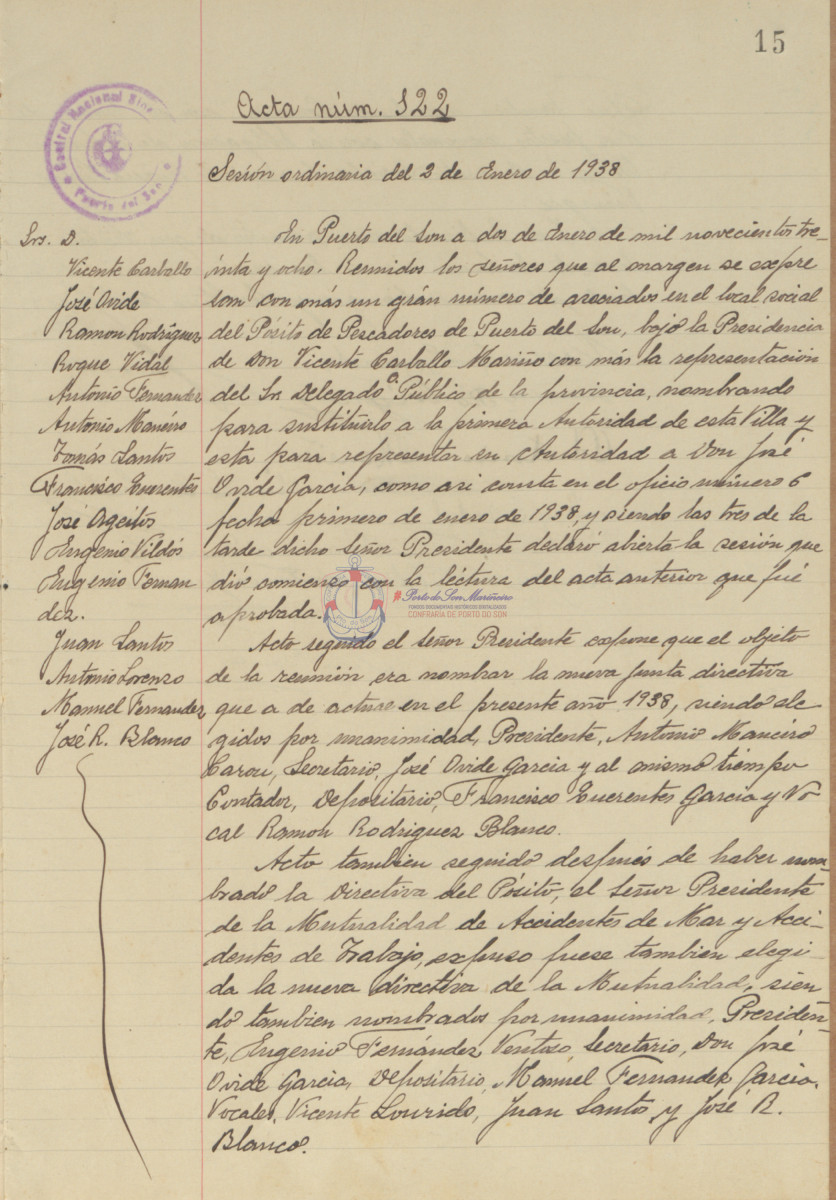 15
Acta núm. 122
Central Nacional Sin
Puerto del Son
Sesión ordinaria del 2 de Enero de 1938
Srs. D.
Vicente Carballo
José Ovide
Ramon Rodríguez
Roque Vidal
Antonio Fernandez
Antonio Maneiro
Tomás Santos
Francisco Cuerentes
José Ageitos
Eugenio Vildós
Eugenio Fernan
dez.
Juan Santos
Antonio Lorenzo
Manuel Fernandez
José R. Blanco
En Puerto del Son a dos de Enero de mil novecientos tre-
ínta y ocho. Reunidos los señores que al margen se expre
san con más un grán número de asociados en el local social
del Pósito de Pescadores de Puerto del Son, bajo la Presidencia
de Don Vicente Carballo Mariño con más la representación
del Sr. Delegado Público de la provincia, nombrando
para sustituírlo a la primera Autoridad de esta Villa y
esta para representar en Autoridad a Don José
Ovide Garcia, como asi consta en el oficio número 6
fecha primero de enero de 1938, y siendo las tres de la
tarde dicho Señor Presidente declaró abierta la sesión que
dió comienzo con la léctura del acta anterior que fué
aprobada.
Acto seguido el señor Presidente expone que el objeto
de la reunión era nombrar la nueva junta directiva
que a de actuar en el presente año 1938, siendo ele
gidos por unanimidad, Presidente, Antonio Maneiro
Carou, Secretario, José Ovide Garcia y al mismo tiempo
Contador, Depositario, Francisco Cuerentes Garcia y Vo
cal Ramon Rodriguez Blanco.
Acto tambien seguido después de haber nom-
brado la Directiva del Pósito, el Señor Presidente
de la Mutualidad de Accidentes de Mar y Acci-
dentes de Trabajo, expuso fuese tambien elegi-
da la nueva directiva de la Mutualidad, sien
do tambien nombrados por unanimidad, Presiden-
te, Eugenio Fernández Ventoso, Secretario, Don José
Ovide Garcia, Depositario, Manuel Fernandez Garcia,
Vocales, Vicente Lourido, Juan Santos y José R.
Blanco.
# Porto do Son Mariñeiro
FONDOS DOCUMENTAIS HISTÓRICOS DIXITALIZADOS
CONFRARÍA DE PORTO DO SON